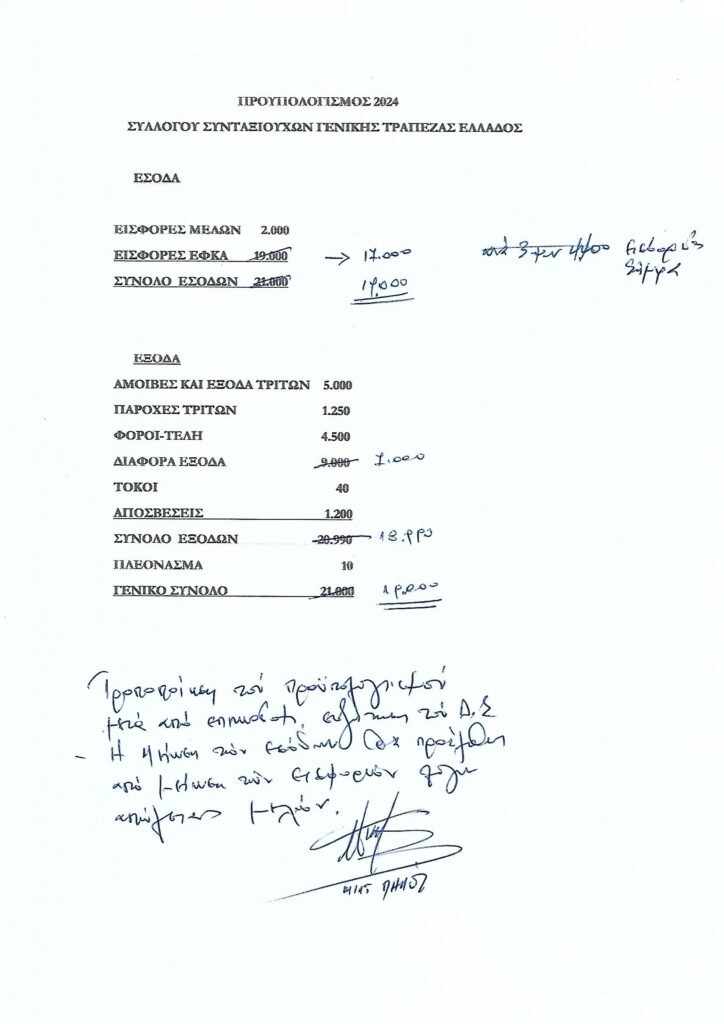 ΠΡΟΥΠΟΛΟΓΙΣΜΟΣ 2024
ΣΥΛΛΟΓΟΥ ΣΥΝΤΑΞΙΟΥΧΩΝ ΓΕΝΙΚΗΣ ΤΡΑΠΕΖΑΣ ΕΛΛΑΔΟΣ
ΕΣΟΔΑ
ΕΙΣΦΟΡΕΣ ΜΕΛΩΝ 2.000
ΕΙΣΦΟΡΕΣ ΕΦΚΑ 19.000 → 17.000
ΣΥΝΟΛΟ ΕΣΟΔΩΝ 21.000 19.000
ΕΞΟΔΑ
ΑΜΟΙΒΕΣ ΚΑΙ ΕΞΟΔΑ ΤΡΙΤΩΝ 5.000
ΠΑΡΟΧΕΣ ΤΡΙΤΩΝ 1.250
ΦΟΡΟΙ-ΤΕΛΗ 4.500
ΔΙΑΦΟΡΑ ΕΞΟΔΑ 9.000 7.000
ΤΟΚΟΙ 40
ΑΠΟΣΒΕΣΕΙΣ 1.200
ΣΥΝΟΛΟ ΕΞΟΔΩΝ 20.990 18.990
ΠΛΕΟΝΑΣΜΑ 10
ΓΕΝΙΚΟ ΣΥΝΟΛΟ 21.000 19.000
Τροποποίηση του προϋπολογισμού
μετά από συζήτηση του Δ.Σ
- Η μείωση των εσόδων θα προέλθει
από μείωση των εισφορών λόγω
μελών.